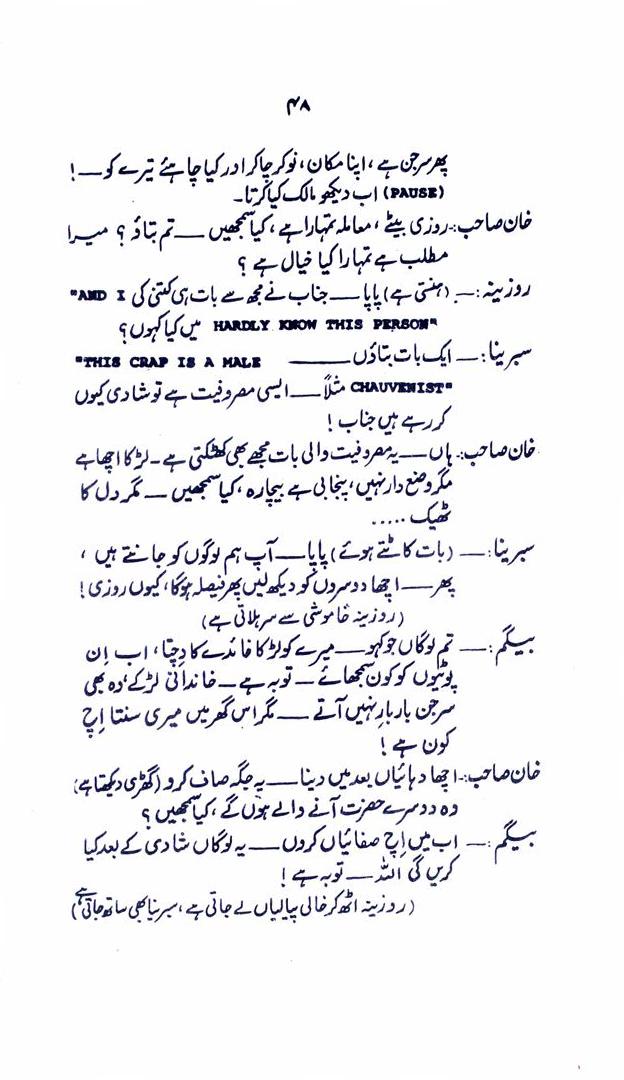 ۴۸
پھر سرجن ہے ، اپنا مکان ، نوکر چاکر اور کیا چاہئے تیرے کو ــــ !
(PAUSE) اب دیکھو مالک کیا کرتا۔
خان صاحب:۔ روزی بیٹے ، معاملہ تمہارا ہے ، کیا سمجھیں ــــ تم بتاؤ ؟ میرا
مطلب ہے تمہارا کیا خیال ہے ؟
روزینہ :ــ (ہنستی ہے) پاپا ــــ جناب نے مجھ سے بات ہی کتنی کی "AND I
HARDLY KNOW THIS PERSON" میں کیا کہوں ؟
سبرینا :ــ ایک بات بتاؤں ــــــــ "THIS CRAP IS A MALE
CHAUVENIST" مثلاً ــــ ایسی مصروفیت ہے تو شادی کیوں
کر رہے ہیں جناب !
خان صاحب:۔ ہاں ــــ یہ مصروفیت والی بات مجھے بھی کھٹکتی ہے ۔ لڑکا اچھا ہے
مگر وضع دار نہیں ، پنجابی ہے بیچارہ ، کیا سمجھیں ــــ مگر دل کا
ٹھیک .....
سبرینا :ــ (بات کاٹتے ہوئے) پاپا ــــ آپ ہم لوگوں کو جانتے ہیں ،
پھر ــــ اچھا دوسروں کو دیکھ لیں پھر فیصلہ ہوگا ، کیوں روزی !
(روزینہ خاموشی سے سر ہلاتی ہے)
بیگم :ــ تم لوگاں جو کہو ــــ میرے کو لڑکا فائدے کا دِچتا ، اب اِن
پوٹیوں کو کون سمجھائے ــ توبہ ہے ــ خاندانی لڑکے ، وہ بھی
سرجن بار بار نہیں آتے ــــ مگر اس گھر میں میری سنتا اِچ
کون ہے !
خان صاحب:۔ اچھا دہائیاں بعد میں دینا ــــ یہ جگہ صاف کرو (گھڑی دیکھتا ہے)
وہ دوسرے حضرت آنے والے ہوں گے ، کیا سمجھیں ؟
بیگم :ــ اب میں اِچ صفائیاں کروں ــــ یہ لوگاں شادی کے بعد کیا
کریں گی اللہ ــــ توبہ ہے !
(روزینہ اٹھ کر خالی پیالیاں لے جاتی ہے ، سبرینا بھی ساتھ جاتی ہے)